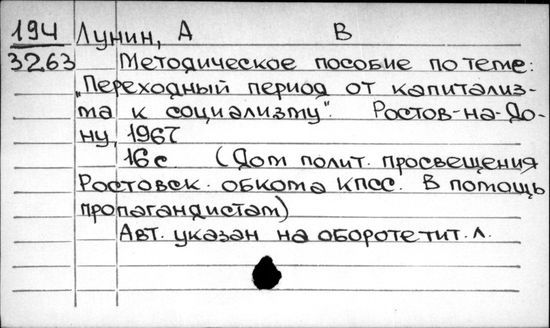 194 Лунин, А В
3263 Методическое пособие по теме:
„Переходный период от капитализ-
ма к социализму". Ростов-на-До-
ну, 1967
16 с (Дом полит. просвещения
Ростовск. обкома КПСС. В помощь
пропагандистам)
Авт. указан на обороте тит. л.